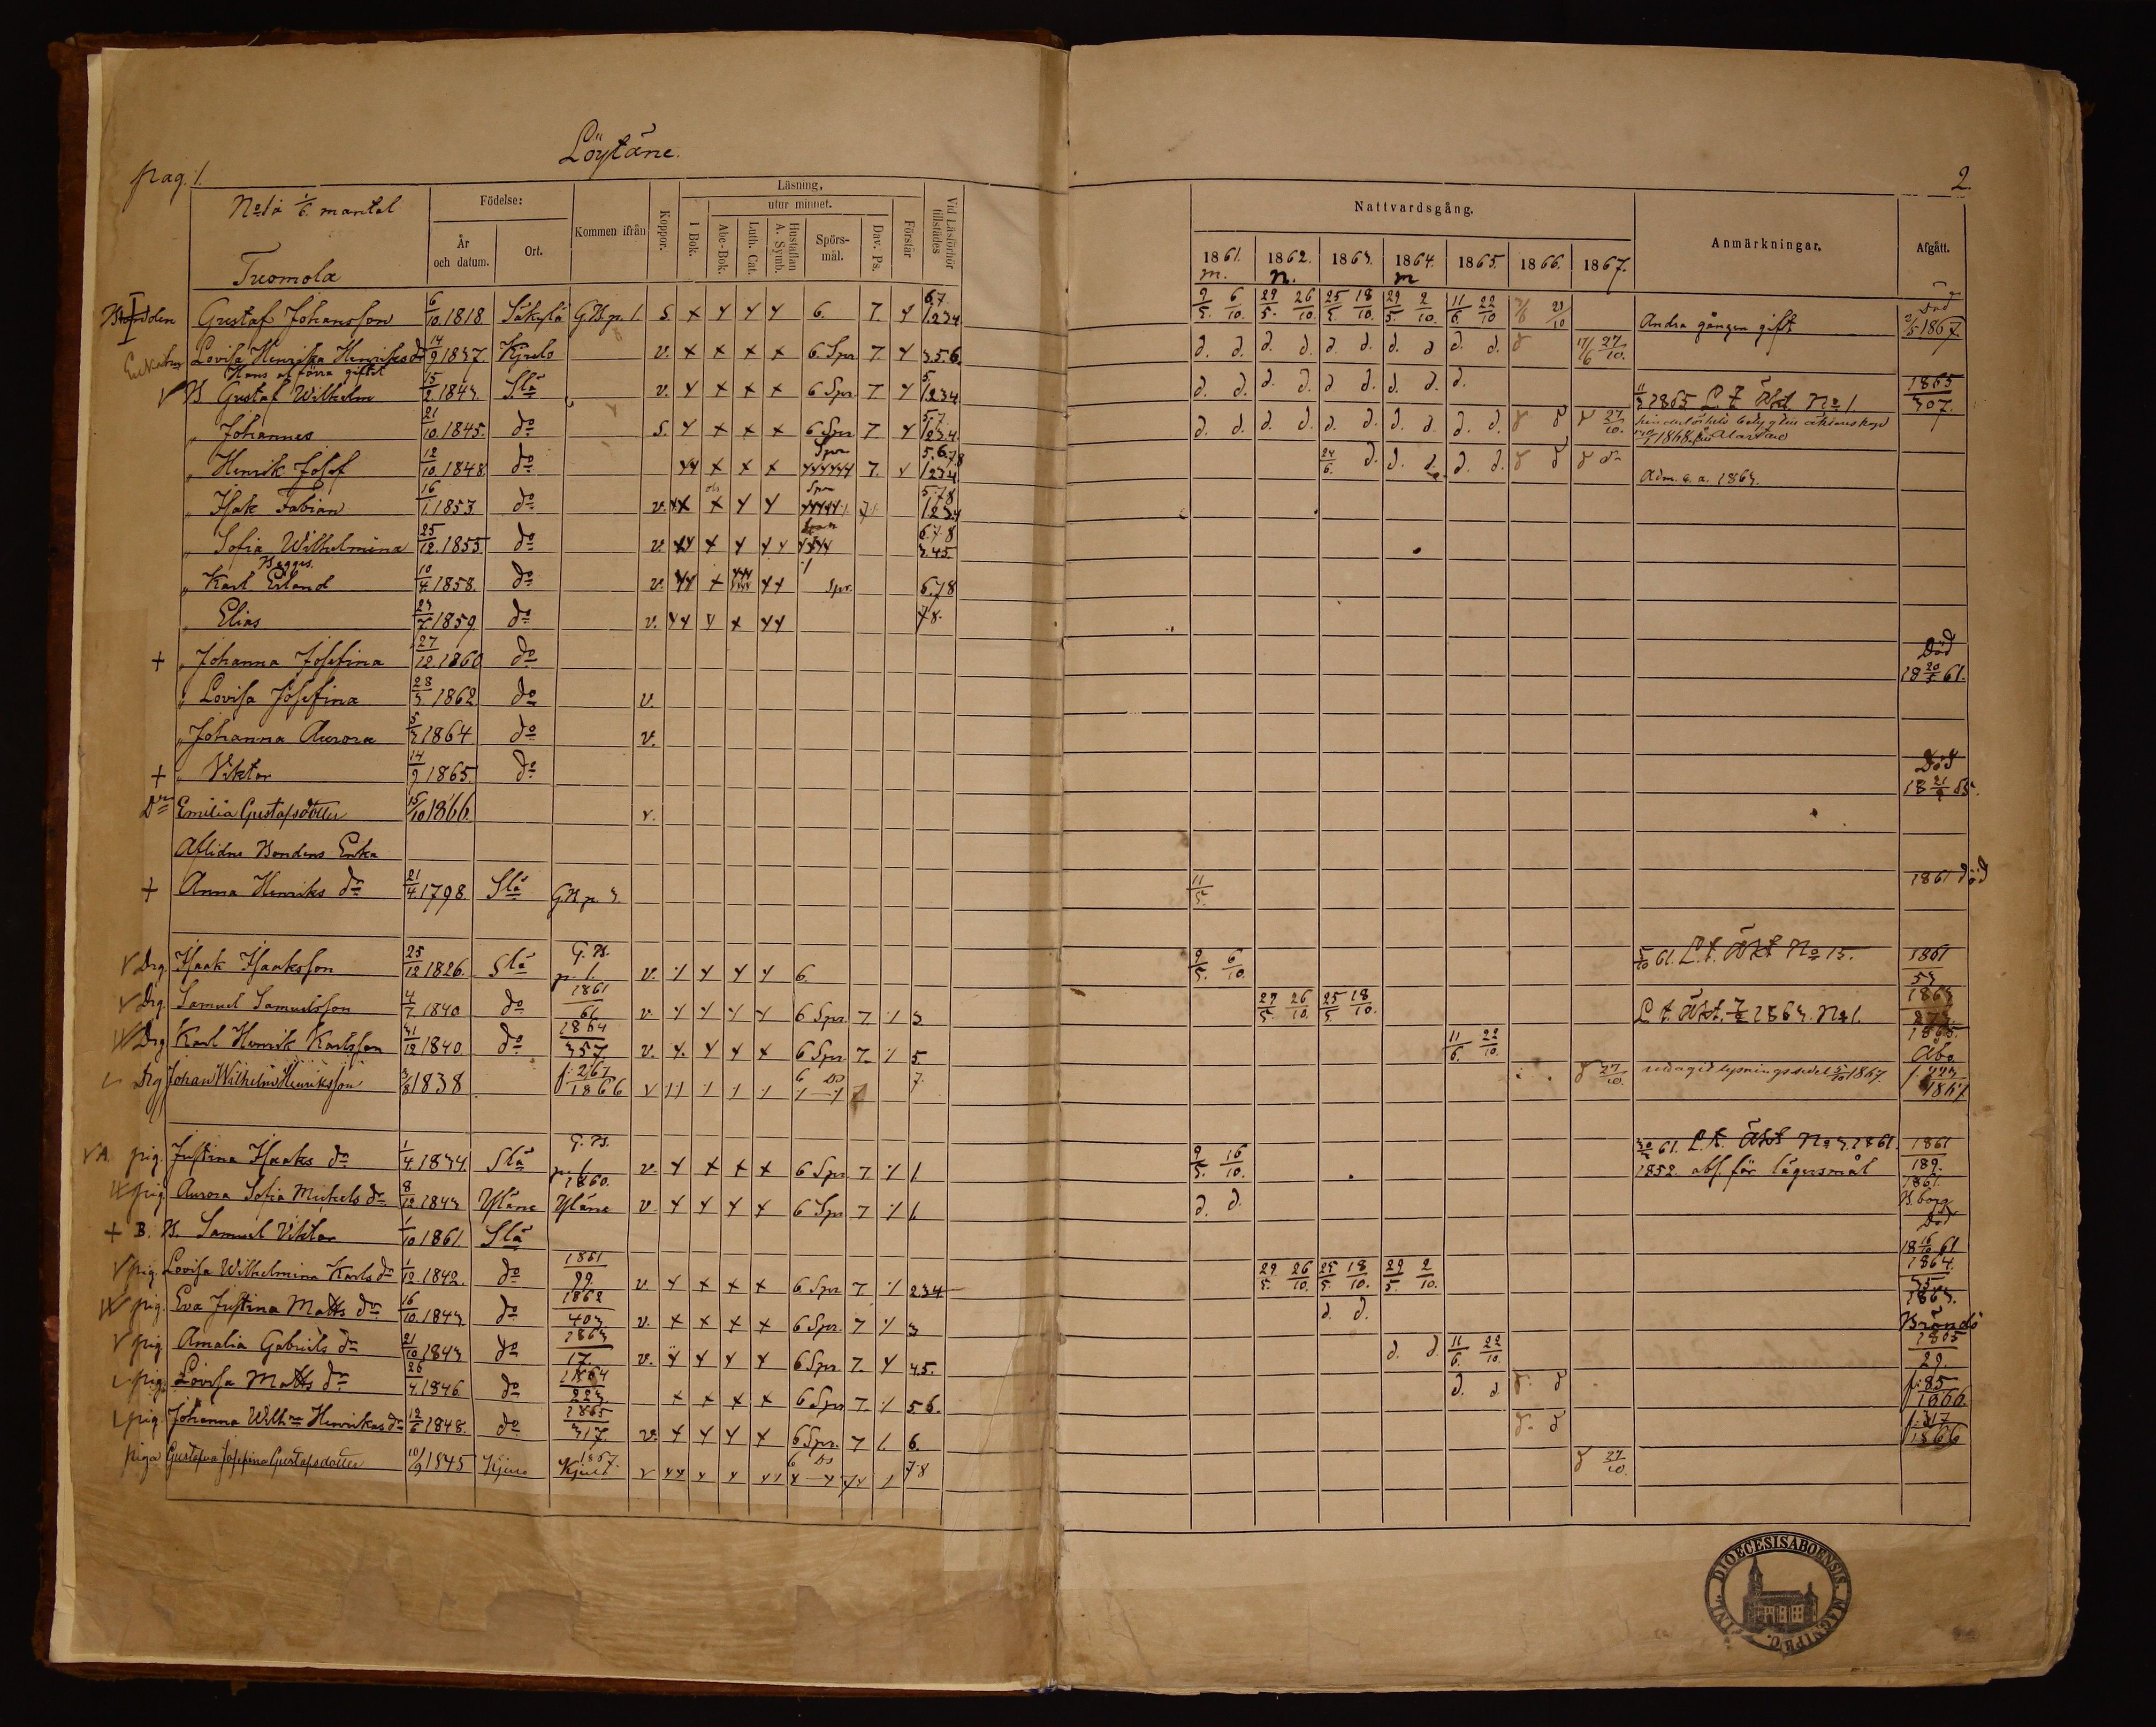 Löytäne.
pag. 1.
2.
No 1 à 1/6 mantal
Tuomola
Födelse:
År och datum.
Ort.
Kommen ifrån
Koppor.
Läsning,
utur minnet.
I Bok.
Abc-Bok.
Luth. Cat.
Hustaflan A. Symb.
Spörs-mål.
Dav. Ps.
Förstår
Vid Läsförhör tillstädes
Nattvardsgång.
1861. 1862. 1863. 1864. 1865. 1866. 1867.
m. n. m
Anmärkningar.
Afgått.
Bonden Gustaf Johansson 6/10. 1818. Säkylä G.B. p. 1 S. 6. 7. 6.7. 1234 9/5. 6/10. 29/5. 26/10. 25/5. 18/10. 29/5. 2/10. 11/6 22/10 21/10 Andra gången gift Död 2/5 1867.
Lovisa Henrika Henriksdr 14/9 1837. Kjulo v. 6 Spr. 7. 3.5.6. d. d. d. d. d. d. d. d d. d. 17/6 27/10.
Hans af förra giftet
B Gustaf Wilhelm 15/2. 1843. Slä v. 6 Spr. 7 5. 1234 d. d. d. d. d d. d. d. d. 1865 L. t. Äkt. No 1. 1865 307.
" Johannes 21/10. 1845. do S. 6 Spr 7. 5.7. 1234. d. d. d. d. d. d. d. d. d. d. 27/10.
" Henrik Josef 12/10. 1848. do Spr 7. 5.6.7.8 1234 24/6. d. d. d. d. d. Adm. s. a. 1863.
" Isak Fabian 16/1. 1853 do v. Spr 5.7.8 1234
" Sofia Wilhelmina 25/12. 1855. do v. 6.7.8 3.45.
Begges.
" Karl Erland 10/4. 1858. do v. Spr. 6.7.8
" Elias 23/7. 1859. do v. 7.8.
+ " Johanna Josefina 27/12. 1860 do Död 18 20/5 61.
" Lovisa Josefina 28/3 1862 do v.
" Johanna Aurora 5/3 1864 do v.
+ " Viktor 14/9 1865. do Död 18 21/9 65.
Dr Emilia Gustafsdotter 15/10 1866. v.
Aflidne Bondens Enka
+ Anna Henriks dr 21/4. 1798. Slä G.B. p. 3. 11/5. 1861 död
Drg. Isaak Isaaksson 25/12 1826. Slä G.B. p. 1. v. 6. 9/5. 6/10. 5/10 61. L.t. Äkt No 15. 1861 53
Drg. Samuel Samuelsson 4/7 1840 do 1861 61 v. 6 Spr. 7. 3 29/5. 26/10. 25/5. 18/10. L. t. Äkt. 1863. No 1. 1863 273.
Drg Karl Henrik Karlsson 31/12 1840. do 1864 357. v. 6 Spr. 7. 5. 11/6. 22/10. 1865. Åbo
Drg Johan Wilhelm Henriksson 3/8 1838 f. 267 1866 v 7. 27/10. lysningssedel 5/10 1867. 1867
pig. Justina Isaaks dr 1/4. 1834. Slä G.B. p. 1. v. 6 Spr 7 1 9/5. 16/10. 61. L.t. Äkt No 3. 1861. 1852. abs. för lägersmål 1861 189.
pig. Aurora Sofia Mickels dr 8/12 1843 Yläne 1860. Yläne v. 6 Spr 7 1. d. d. 1861. B.borg
+ B. B. Samuel Viktor 1/10 1861. Slä Död 18 16/10 61
pig. Lovisa Wilhelmina Karls dr 1/12. 1842. do 1861 99. v. 6 Spr 7 234 29/5. 26/10. 25/5. 18/10. 29/5. 2/10. 1864. 35
pig. Eva Justina Matts dr 16/10. 1843 do 1862 403 v. 6 Spr. 7 3 d. d. 1863. Brändö
pig. Amalia Gabriels dr 21/10 1843 do 1863 17. v. 6 Spr 7. 45. d. d. 11/6. 22/10. 1865 29.
pig. Lovisa Matts dr 26/4. 1846. do 1864 223 6 Spr 7. 56. d. d. f: 85 1866.
pig. Johanna Wilh:na Henriks dr 12/6 1848. do 1865 317. v. 6 Spr. 7 6. f. 317 1866
Piga Gustafva Josefina Gustafsdotter 10/9 1845 Kjulo 1867. Kjulo v 7.8 27/10.
DIOECESIS ABOENSIS
MAGNI PR.